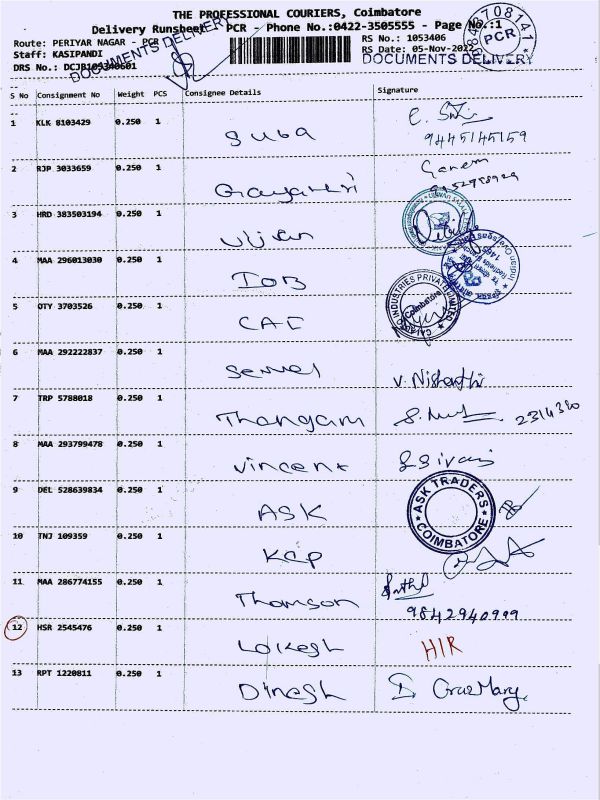 THE PROFESSIONAL COURIERS, Coimbatore
Delivery Runsheet PCR - Phone No.:0422-3505555 - Page No.:1
Route: PERIYAR NAGAR - PCR
RS No.: 1053406
Staff: KASIPANDI
RS Date: 05-Nov-2022
DOCUMENTS DELIVERY
DOCUMENTS DELIVERY
PCR
S No Consignment No Weight PCS Consignee Details Signature
1 KLK 8103429 0.250 1 Suba
9445145159
2 RJP 3033659 0.250 1 Gayathri Ganem
3 HRD 383503194 0.250 1
4 MAA 296013030 0.250 1 IOB
5 OTY 3703526 0.250 1 CAE
INDUSTRIES PRIVATE LIMITED
Coimbatore
6 MAA 292222837 0.250 1 V. Nishanthi
7 TRP 5788018 0.250 1 Thangam
8 MAA 293799478 0.250 1 Vincent
9 DEL 528639834 0.250 1 ASK
ASK TRADERS
COIMBATORE
10 TNJ 109359 0.250 1 KCP
11 MAA 286774155 0.250 1 Thomson
9842940999
12 HSR 2545476 0.250 1 Lokesh HIR
13 RPT 1220811 0.250 1 Dinesh